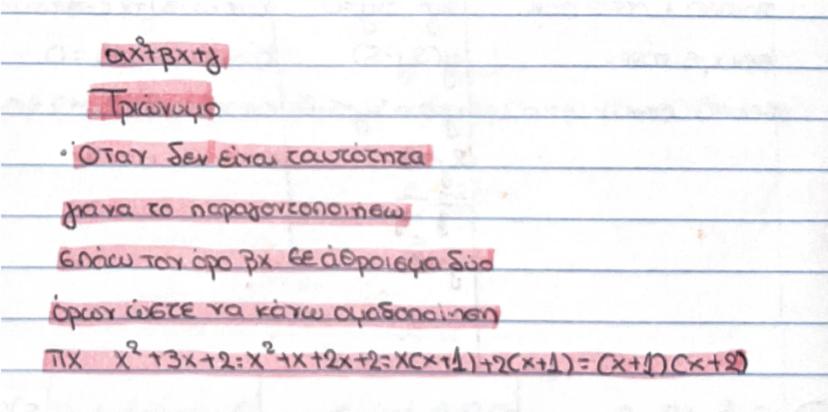 αx²+βx+γ
Τριώνυμο
· Όταν δεν είναι ταυτότητα
για να το παραγοντοποιήσω
σπάω τον όρο βx σε άθροισμα δύο
όρων ώστε να κάνω ομαδοποίηση
πχ x²+3x+2=x²+x+2x+2=x(x+1)+2(x+1)=(x+1)(x+2)